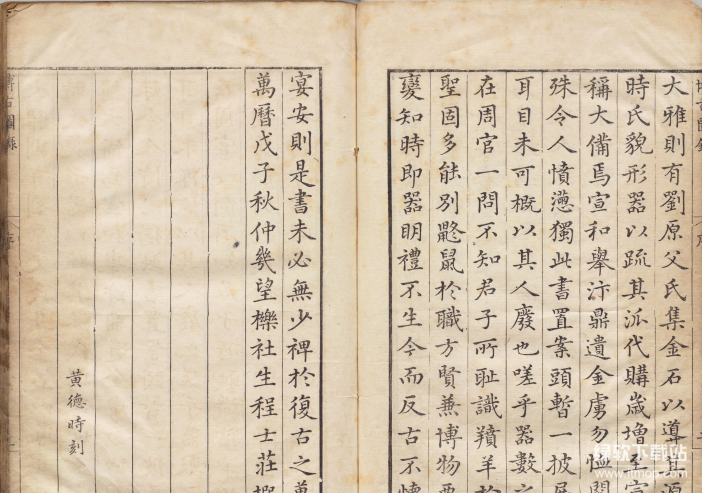 大雅則有劉原父氏集金石以導其源
時氏貌形器以疏其派代購歲增至宣
稱大備焉宣和舉汴鼎遺金虜勿恤
殊令人憤懣獨此書置案頭暫一披
耳目未可概以其人廢也嗟乎器數之
在周官一問不知君子所恥識羵羊於
聖固多能別鼮鼠於職方賢兼博物
夔知時即器明禮不生今而反古不
宴安則是書未必無少裨於復古之萬
萬曆戊子秋仲幾望櫟社生程士莊
黃德時刻
博古圖錄
序